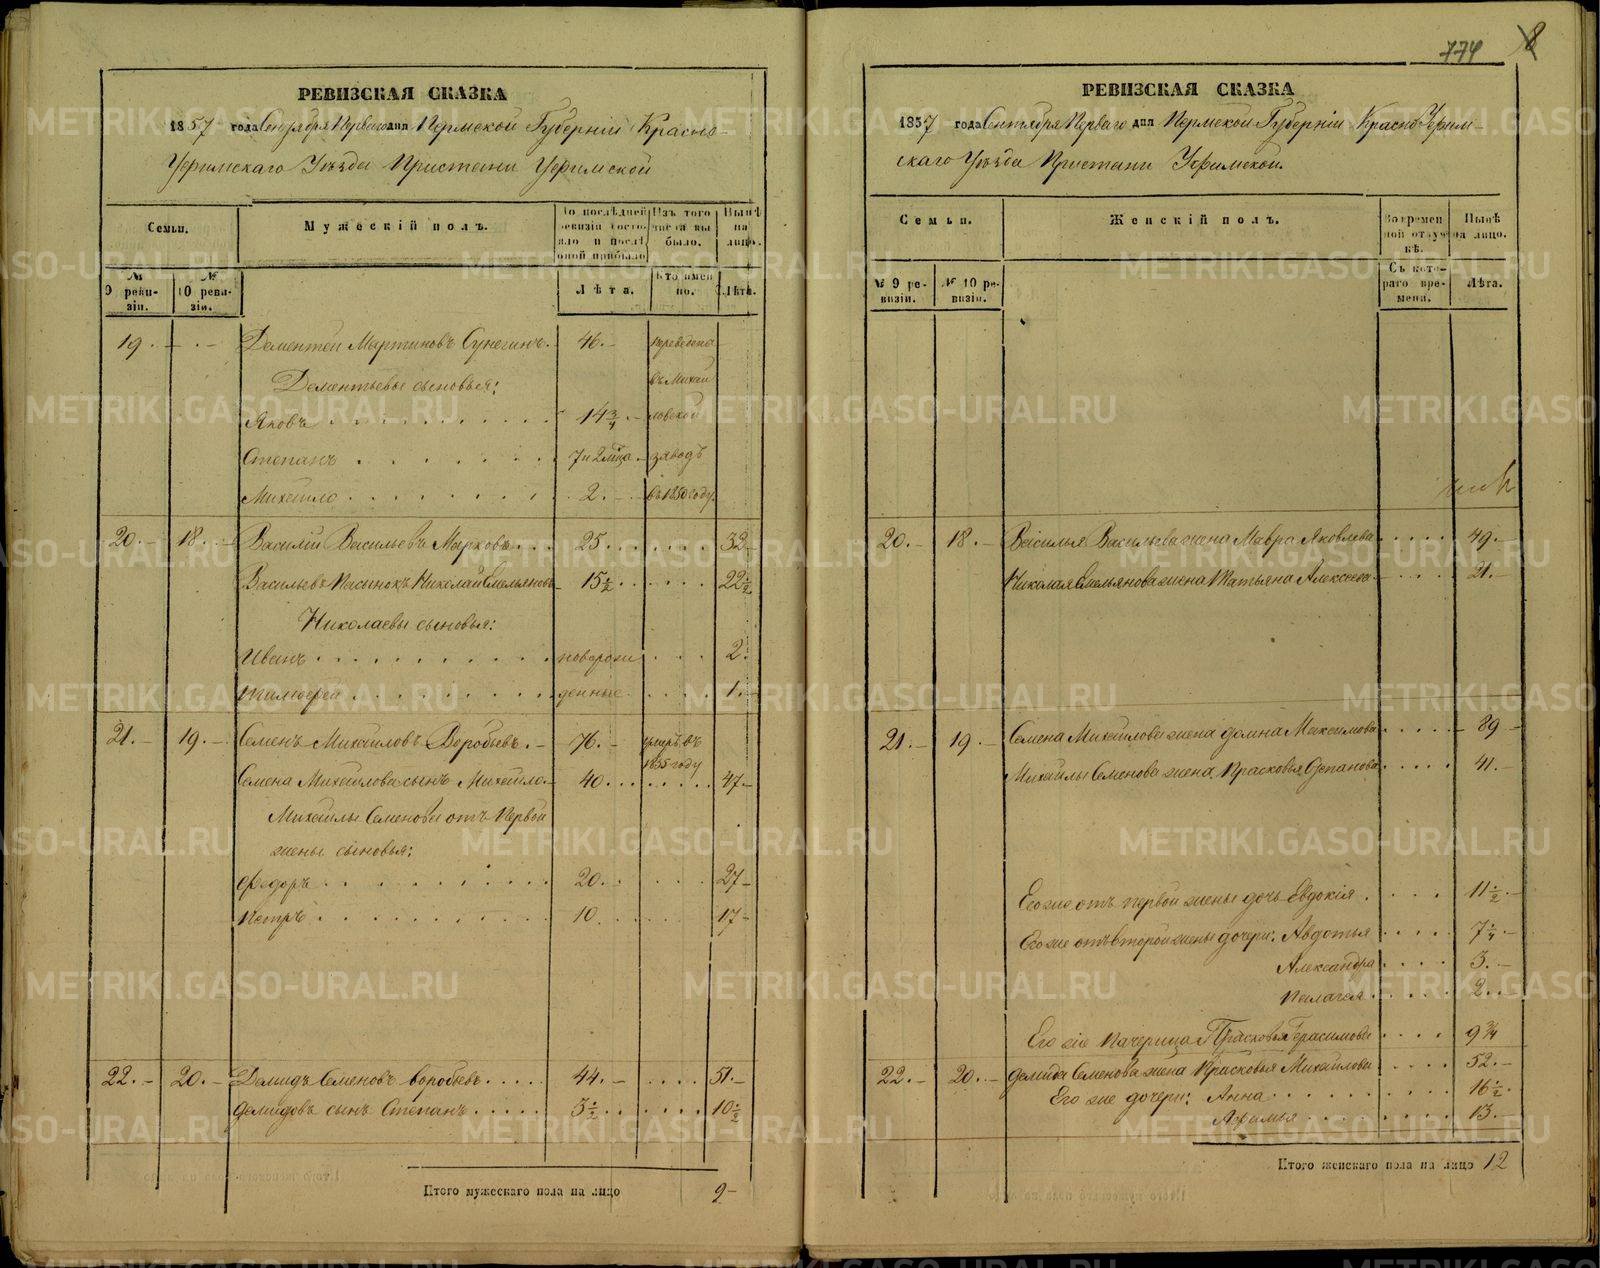 РЕВИЗСКАЯ СКАЗКА
1857 года Сентября Перваго дня Пермской Губерніи Красно-
Уфимскаго Уѣзда Пристани Уфимской
Семьи.
Мужескій полъ.
По послѣдней ревизіи состояло и послѣ оной прибыло
Изъ того числа выбыло.
Нынѣ на лицо.
№ 9 ревизіи.
№ 10 ревизіи.
Лѣта.
Кто именно.
Лѣта.
19. - . - Дементей Мартиновъ . 46. - переведены
Дементьевы сыновья: въ Михай
Яковъ 14 3/4 . - ловской
Степанъ 7 и 2 мѣсца . - заводъ
Михайло 2. - въ 1850 году.
20. - 18. - Василій Васильевъ Марковъ 25 32
Васильевъ Пасынокъ Николай Емельяновъ 15 1/2 22 1/2
Николаевы сыновья:
Иванъ новорож 2.
денные 1. -
21. - 19. - Семенъ Михайловъ Воробьевъ. - 76. - умеръ въ
1855 году
Семена Михайлова сынъ Михайло 40 47 -
Михайлы Семенова отъ Первой
жены сыновья:
Федоръ 20 27 -
Петръ 10 17 -
22. - 20. - Демидъ Семеновъ Воробьевъ 44. - 51. -
Демидовъ сынъ Степанъ 3 1/2 10 1/2
Итого мужескаго пола на лицо 9 -
774 8
РЕВИЗСКАЯ СКАЗКА
1857 года Сентября Перваго дня Пермской Губерніи КрасноУфим-
скаго Уѣзда Пристани Уфимской.
Семьи.
Женскій полъ.
Во временной отлучкѣ.
Нынѣ на лицо.
№ 9 ревизіи.
№ 10 ревизіи.
Съ котораго времени.
Лѣта.
20. - 18. - Василья Васильева жена Мавра Яковлева 49. -
Николая Емельянова жена Татьяна Алексеева 21. -
21 19. - Семена Михайлова жена Домна Максимова 89 -
Михайлы Семенова жена Прасковья Степанова 41. -
Его же отъ первой жены дочь Евдокія 11 1/2 -
Его же отъ второй жены дочери: Авдотья 7 1/4 -
Александра 3. -
Пелагея 2
Его же Пачерица Прасковья Герасимова 9 3/4
22. - 20. - Демида Семенова жена Прасковья Михайлова 52. -
Его же дочери: Анна 16 1/2
Афимья 13. -
Итого женскаго пола на лицо 12
METRIKI.GASO-URAL.RU